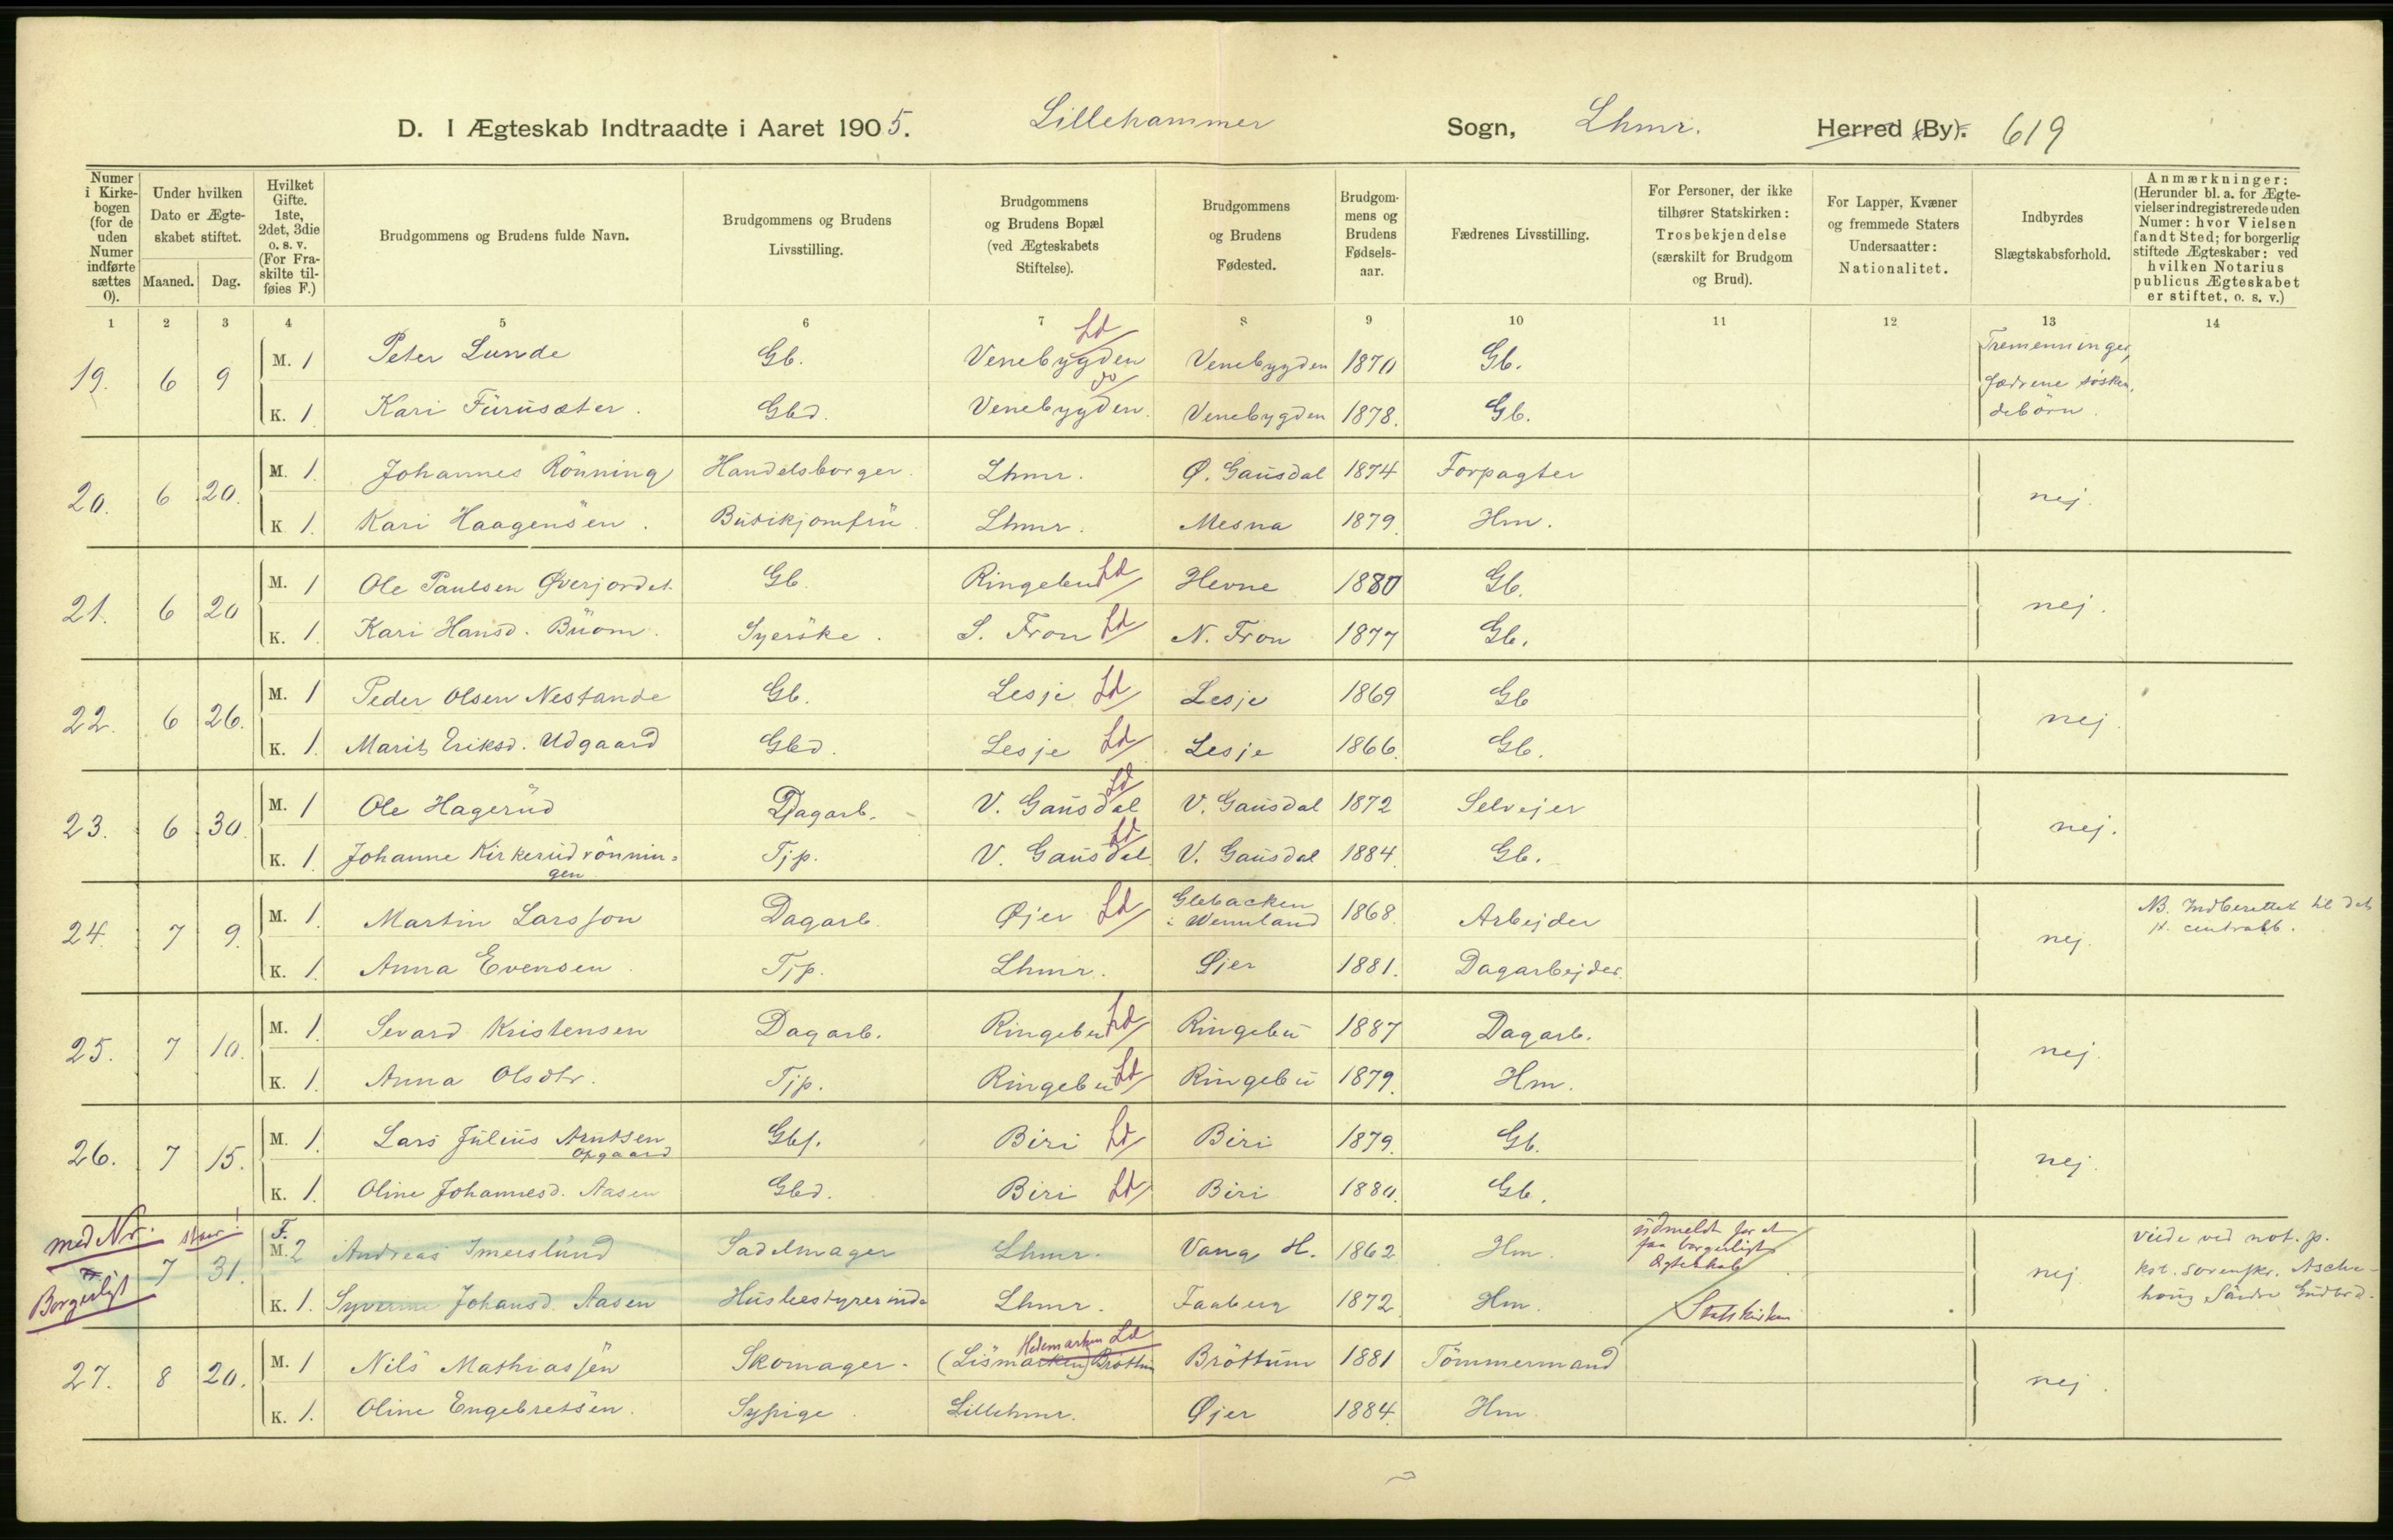 D. I Ægteskab Indtraadte i Aaret 1905. Lillehammer Sogn, Lhmr. Herred (By). 619
Numer i Kirkebogen (for de uden Numer indførte sættes 0).
Under hvilken Dato er Ægteskabet stiftet.
Maaned. Dag.
Hvilket Gifte. 1ste, 2det, 3die o. s. v. (For Fraskilte tilføies F.)
Brudgommens og Brudens fulde Navn.
Brudgommens og Brudens Livsstilling.
Brudgommens og Brudens Bopæl (ved Ægteskabets Stiftelse).
Brudgommens og Brudens Fødested.
Brudgommens og Brudens Fødselsaar.
Fædrenes Livsstilling.
For Personer, der ikke tilhører Statskirken: Trosbekjendelse (særskilt for Brudgom og Brud).
For Lapper, Kvæner og fremmede Staters Undersaatter: Nationalitet.
Indbyrdes Slægtskabsforhold.
Anmærkninger: (Herunder bl. a. for Ægtevielser indregistrerede uden Numer: hvor Vielsen fandt Sted; for borgerlig stiftede Ægteskaber: ved hvilken Notarius publicus Ægteskabet er stiftet, o. s. v.)
1 2 3 4 5 6 7 8 9 10 11 12 13 14
19. 6 9 M. 1 Peter Lunde Gb. Venebygden Ld Venebygden 1870 Gb. Tremenninger, fædrene søskendebörn.
K. 1 Kari Furusæter. Gbd. Venebygden. do Venebygden 1878. Gb.
20. 6 20. M. 1 Johannes Rönning Handelsborger. Lhmr. Ø. Gausdal 1874 Forpagter nej.
K 1. Kari Haagensen. Butikjomfru. Lhmr. Mesna 1879. Hm.
21. 6 20 M. 1 Ole Paulsen Øverjordet. Gb. Ringebu Ld Hevne 1880 Gb. nej.
K. 1. Kari Hansd. Buom. Syerske. S. Fron Ld N. Fron 1877 Gb.
22. 6 26. M. 1 Peder Olsen Nestande Gb. Lesje Ld Lesje 1869 Gb nej.
K. 1. Marit Eriksd. Udgaard Gbd. Lesje Ld Lesje 1866. Gb.
23. 6 30 M. 1 Ole Hagerud Dagarb. V. Gausdal Ld V. Gausdal 1872 Selvejer nej.
K. 1. Johanne Kirkerudrönningen Tjp. V. Gausdal Ld V. Gausdal 1884. Gb.
24. 7 9. M. 1. Martin Larsson Dagarb. Øjer Ld Glebacken i Wermland 1868. Arbejder nej. NB. Indberettet til det st. centralb.
K. 1. Anna Evensen. Tjp. Lhmr. Øjer 1881. Dagarbejder.
25. 7 10. M. 1. Sevard Kristensen Dagarb. Ringebu Ld Ringebu 1887 Dagarb. nej.
K. 1. Anna Olsdtr. Tjp. Ringebu Ld Ringebu 1879. Hm.
26. 7 15. M. 1. Lars Julius Arntsen Opgaard Gbf. Biri Ld Biri 1879. Gb. nej.
K. 1. Oline Johannesd. Aasen Gbd. Biri Ld Biri 1880. Gb.
med Nr.
Borgerligt 7 31. F. M. 2 Andreas Imerslund Sadelmager Lhmr. Vang H. 1862 Hm. udmeldt for at faa borgerligt ægteskab nej Viede ved not. p. kst. sorenskr. Söndre Gudbrd.
K. 1. Johansd. Aasen Husbestyrerinde Lhmr. Faaberg 1872. Hm. Statskirken
27. 8 20. M. 1 Nils Mathiassen Skomager. (Lismarken) Bröttum Hedemarken Ld Bröttum 1881 Tömmermand nej.
K. 1. Oline Engebretsen. Sypige. Lillehmr. Øjer 1884. Hm.